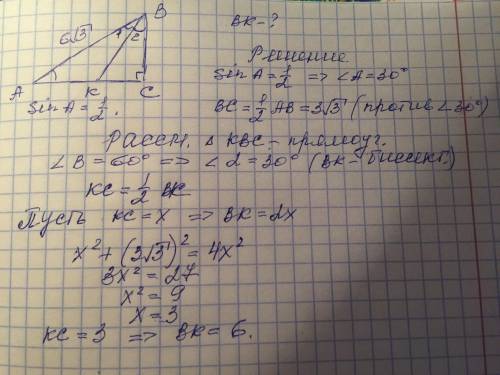 BK - ?
B
6√3
1
2
A
K
C
sin A = 1/2.
Решение
sin A = 1/2 => ∠A = 30°
BC = 1/2 AB = 3√3 (против ∠30°)
Рассм. △ KBC - прямоуг.
∠B = 60° => ∠2 = 30° (BK - биссект.)
KC = 1/2 BK
Пусть KC = x => BK = 2x
x² + (3√3)² = 4x²
3x² = 27
x² = 9
x = 3
KC = 3 => BK = 6.